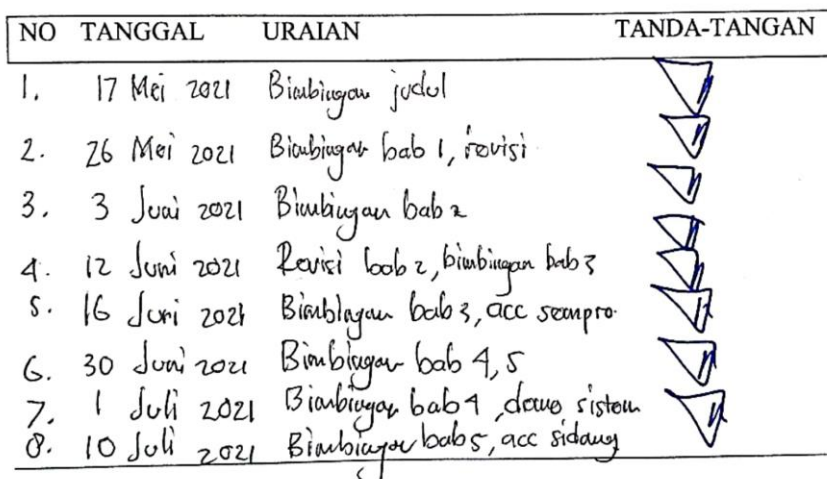 NO TANGGAL URAIAN TANDA-TANGAN
1. 17 Mei 2021 Bimbingan judul
2. 26 Mei 2021 Bimbingan bab 1, revisi
3. 3 Juni 2021 Bimbingan bab 2
4. 12 Juni 2021 Revisi bab 2, bimbingan bab 3
5. 16 Juni 2021 Bimbingan bab 3, acc sempro
6. 30 Juni 2021 Bimbingan bab 4, 5
7. 1 Juli 2021 Bimbingan bab 4, demo sistem
8. 10 Juli 2021 Bimbingan bab 5, acc sidang